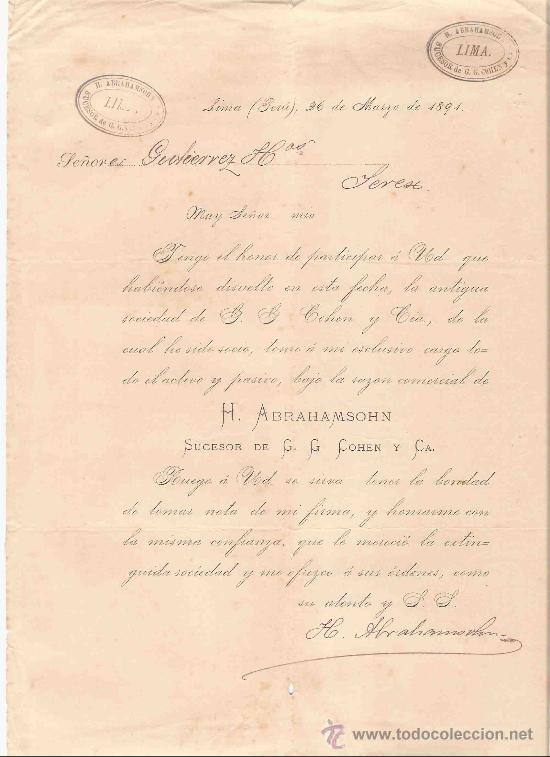 H. ABRAHAMSOHN
LIMA.
SUCESOR de G. G. COHEN y
H. ABRAHAMSOHN
SUCESOR de G. G.
Lima (Perú), 26 de Marzo de 1891.
Señores Gutierrez Hos
Jerez.
Muy Señor mio
Tengo el honor de participar á Ud que
habiéndose disuelto en esta fecha, la antigua
sociedad de G. G Cohen y Cia, de la
cual he sido socio, tomo á mi exclusivo cargo to-
do el activo y pasivo, bajo la razon comercial de
H. ABRAHAMSOHN
SUCESOR DE G. G COHEN Y CA.
Ruego á Ud. se sirva tener la bondad
de tomar nota de mi firma, y honrarme con
la misma confianza, que le mereció la extin-
guida sociedad y me ofrezco á sus órdenes, como
su atento y S. S.
H. Abrahamsohn
todocoleccion
www.todocoleccion.net